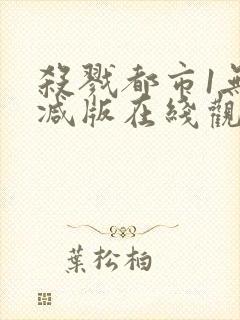 殺戮都市1無
減版在綫觀
葉松柏